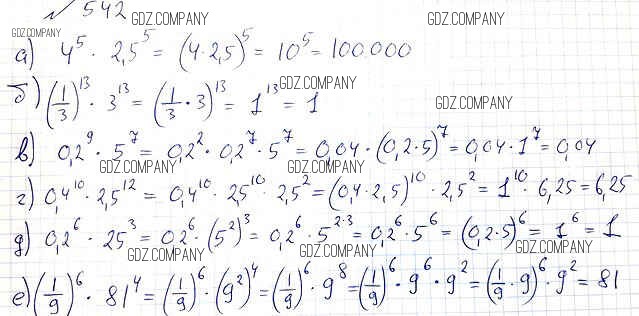 № 542 GDZ.COMPANY GDZ.COMPANY
GDZ.COMPANY
а) 4⁵ · 2,5⁵ = (4·2,5)⁵ = 10⁵ = 100000
GDZ.COMPANY
б) (1/3)¹³ · 3¹³ = (1/3 · 3)¹³ = 1¹³ = 1
GDZ.COMPANY
в) 0,2⁹ · 5⁷ = 0,2² · 0,2⁷ · 5⁷ = 0,04 · (0,2·5)⁷ = 0,04 · 1⁷ = 0,04
GDZ.COMPANY GDZ.COMPANY
г) 0,4¹⁰ · 2,5¹² = 0,4¹⁰ · 2,5¹⁰ · 2,5² = (0,4·2,5)¹⁰ · 2,5² = 1¹⁰ · 6,25 = 6,25
д) 0,2⁶ · 25³ = 0,2⁶ · (5²)³ = 0,2⁶ · 5²·³ = 0,2⁶ · 5⁶ = (0,2·5)⁶ = 1⁶ = 1
GDZ.COMPANY GDZ.COMPANY GDZ.COMPANY
е) (1/9)⁶ · 81⁴ = (1/9)⁶ · (9²)⁴ = (1/9)⁶ · 9⁸ = (1/9)⁶ · 9⁶ · 9² = (1/9 · 9)⁶ · 9² = 81